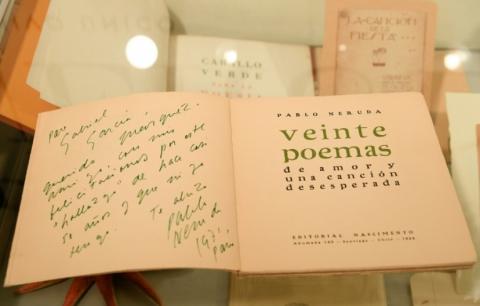 para
Gabriel
García Márquez.
querido
amigo, con mis
felicitaciones por este
"hallazgo" de hace casi
50 años y que yo no
tengo.
Te abraza
Pablo
Neruda
1971,
Paris
PABLO NERUDA
veinte
poemas
de amor y
una canción
desesperada
EDITORIAL NASCIMENTO
Santiago - Chile - 1924
CABALLO
VERDE
PARA LA
POESIA
LA CANCION
DE LA
FIESTA
UNICO